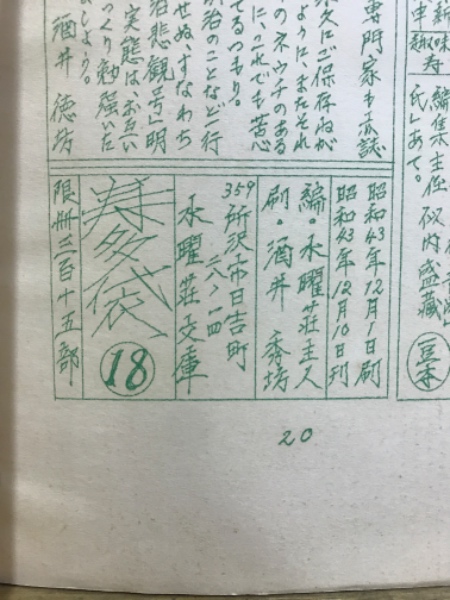 趣味
寿
編集主任
氏」あて。
豆本
専門家も
久にご保存ねが
ように、またそれ
のネウチのある
に、これでも苦心
てるつもり。
のことなど行
せぬ、すなわち
悲観号」明
実態は、お互い
っくり勉強いた
ましょう。
酒井徳坊
昭和43年12月1日刷
昭和43年12月10日刊
編・水曜荘主人
刷・酒井秀坊
359所沢市日吉町
八ノ一四
水曜荘文庫
寿多袋
18
限冊三百十五部
20